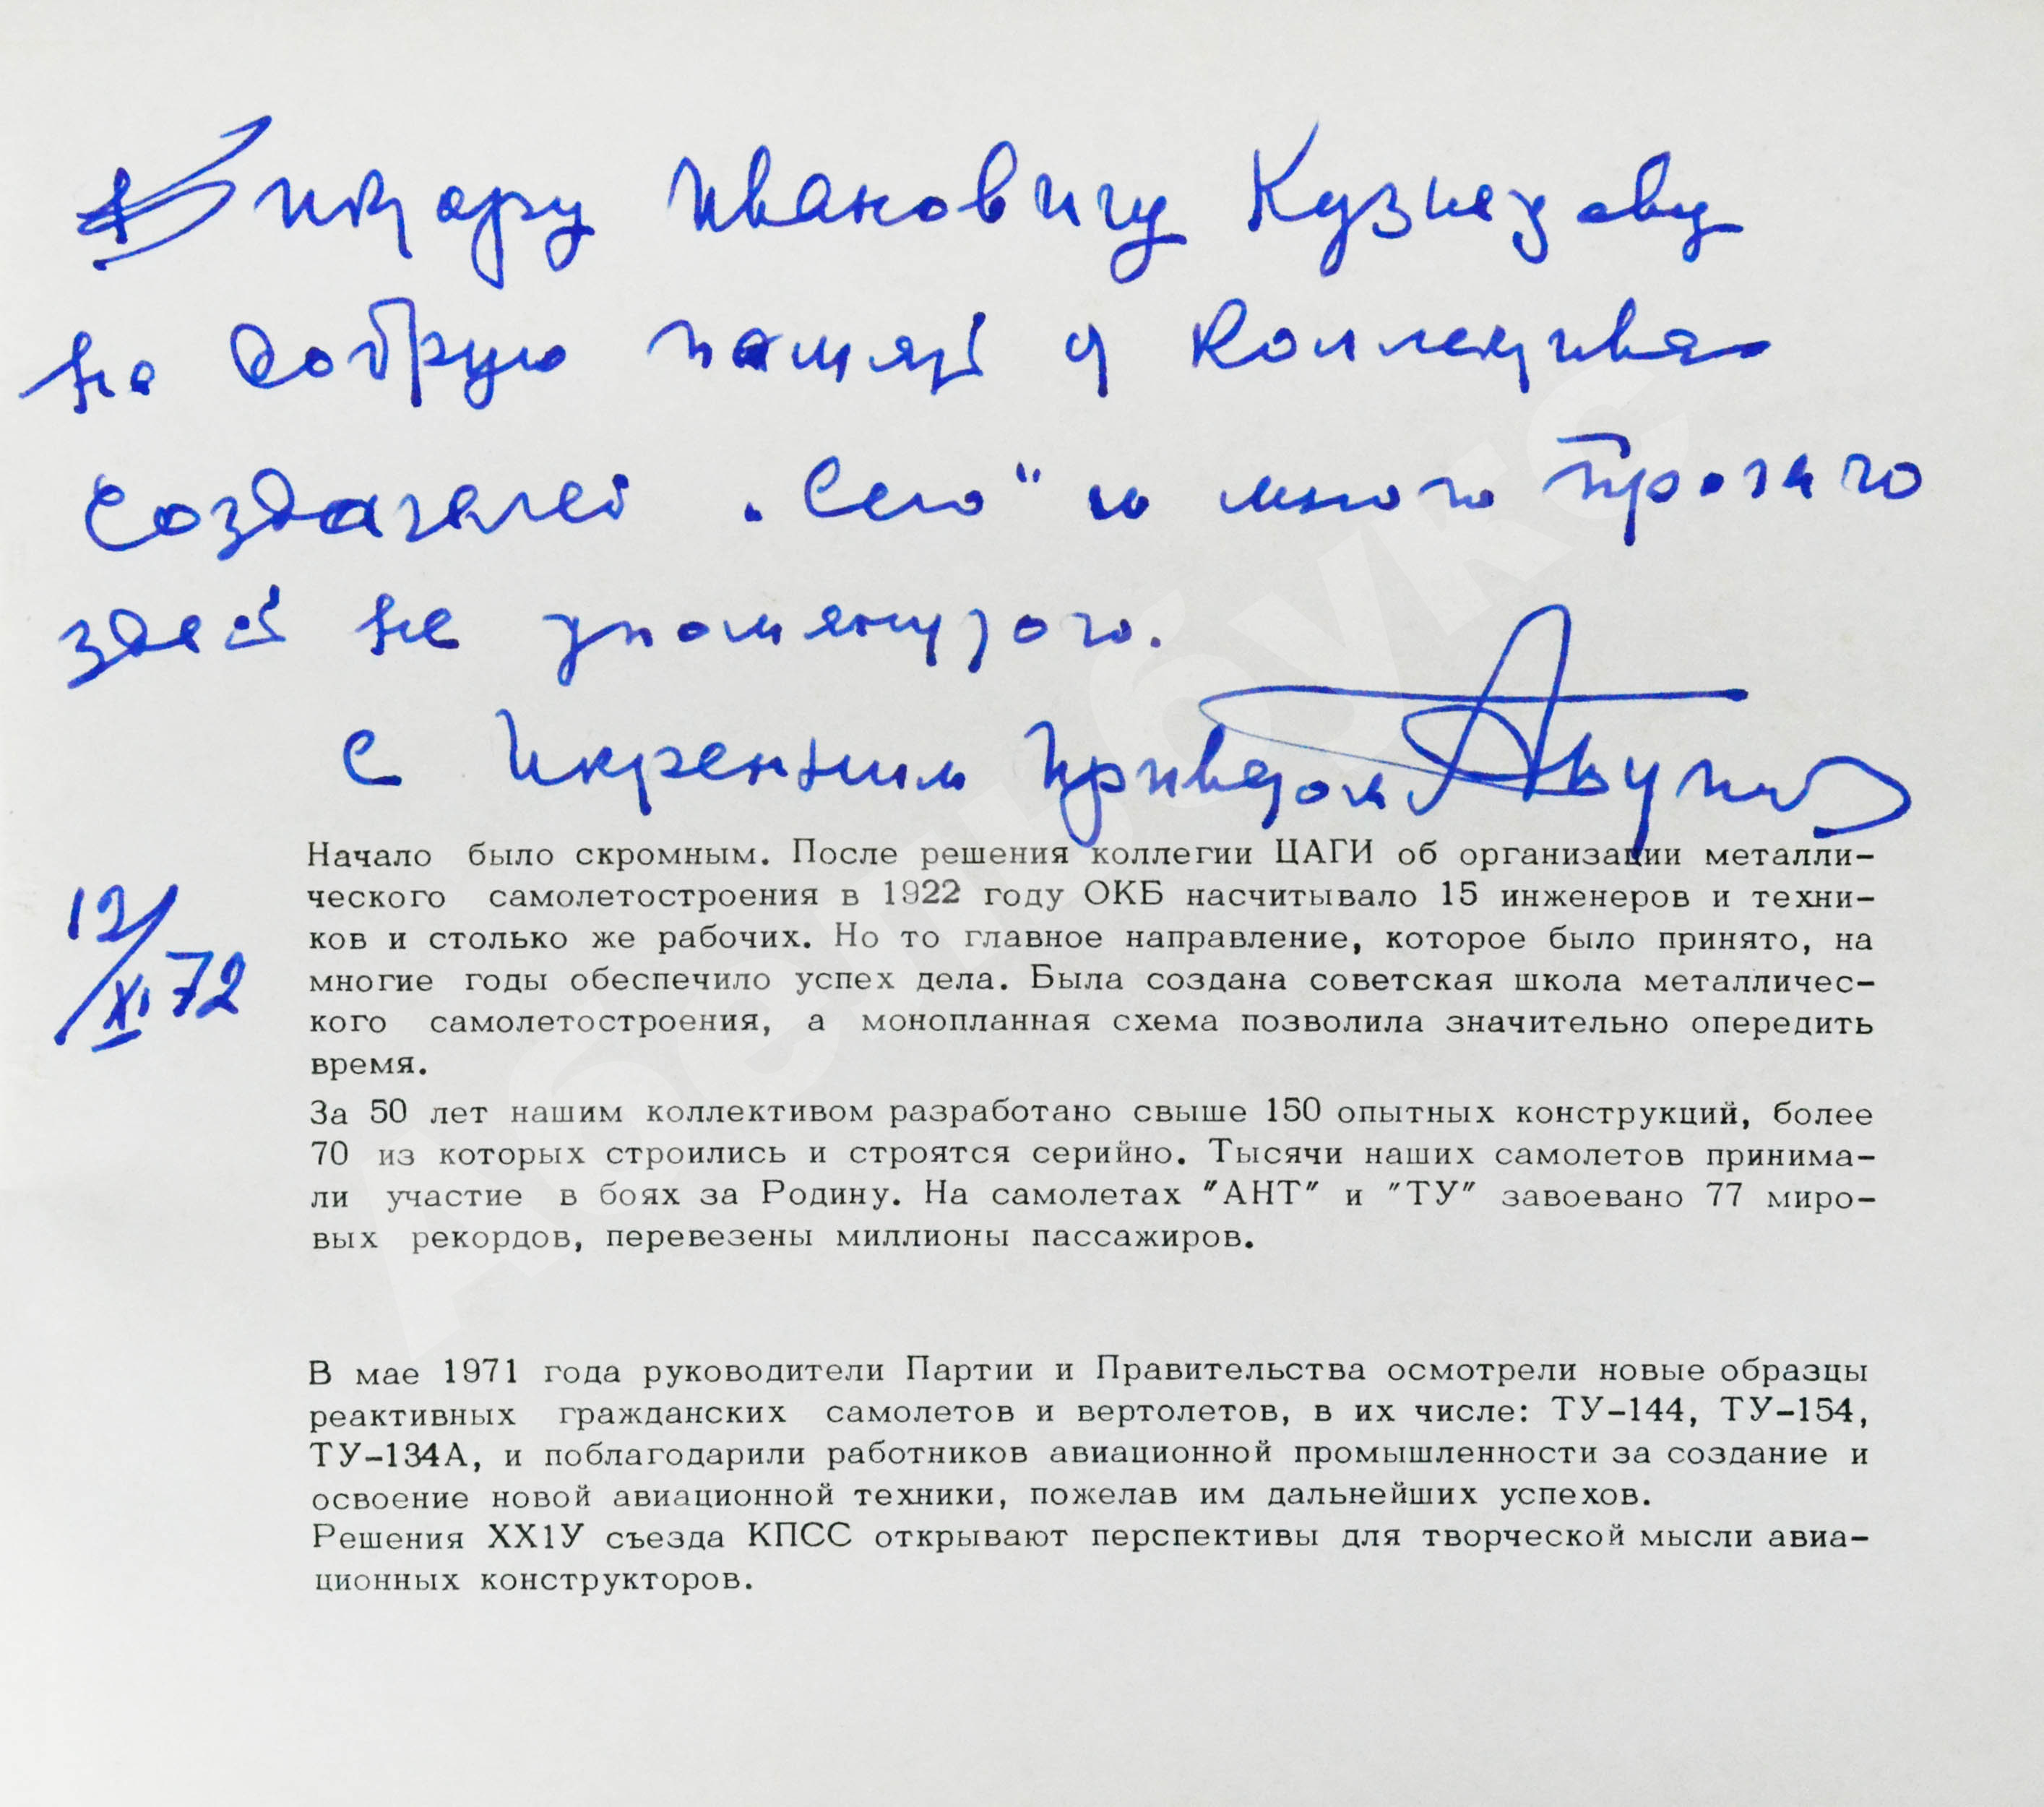 Виктору Ивановичу Кузнецову
на добрую память от коллектива
создателей „Сего" и много прочего
здесь не упомянутого.
с искренним приветом А Туполев
12/XI 72
Начало было скромным. После решения коллегии ЦАГИ об организации металли-
ческого самолетостроения в 1922 году ОКБ насчитывало 15 инженеров и техни-
ков и столько же рабочих. Но то главное направление, которое было принято, на
многие годы обеспечило успех дела. Была создана советская школа металличес-
кого самолетостроения, а монопланная схема позволила значительно опередить
время.
За 50 лет нашим коллективом разработано свыше 150 опытных конструкций, более
70 из которых строились и строятся серийно. Тысячи наших самолетов принима-
ли участие в боях за Родину. На самолетах "АНТ" и "ТУ" завоевано 77 миро-
вых рекордов, перевезены миллионы пассажиров.
В мае 1971 года руководители Партии и Правительства осмотрели новые образцы
реактивных гражданских самолетов и вертолетов, в их числе: ТУ-144, ТУ-154,
ТУ-134А, и поблагодарили работников авиационной промышленности за создание и
освоение новой авиационной техники, пожелав им дальнейших успехов.
Решения ХХ1У съезда КПСС открывают перспективы для творческой мысли авиа-
ционных конструкторов.